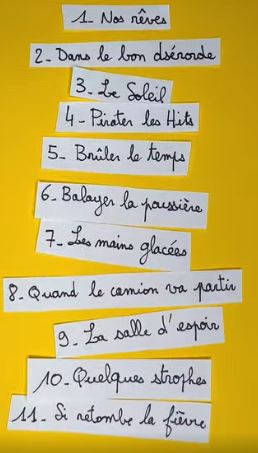 1- Nos rêves
2- Dans le bon désordre
3- Le Soleil
4- Pirater les Hits
5- Brûler le temps
6- Balayer la poussière
7- Les mains glacées
8- Quand le camion va partir
9- La salle d'espoir
10- Quelques strophes
11- Si retombe la fièvre